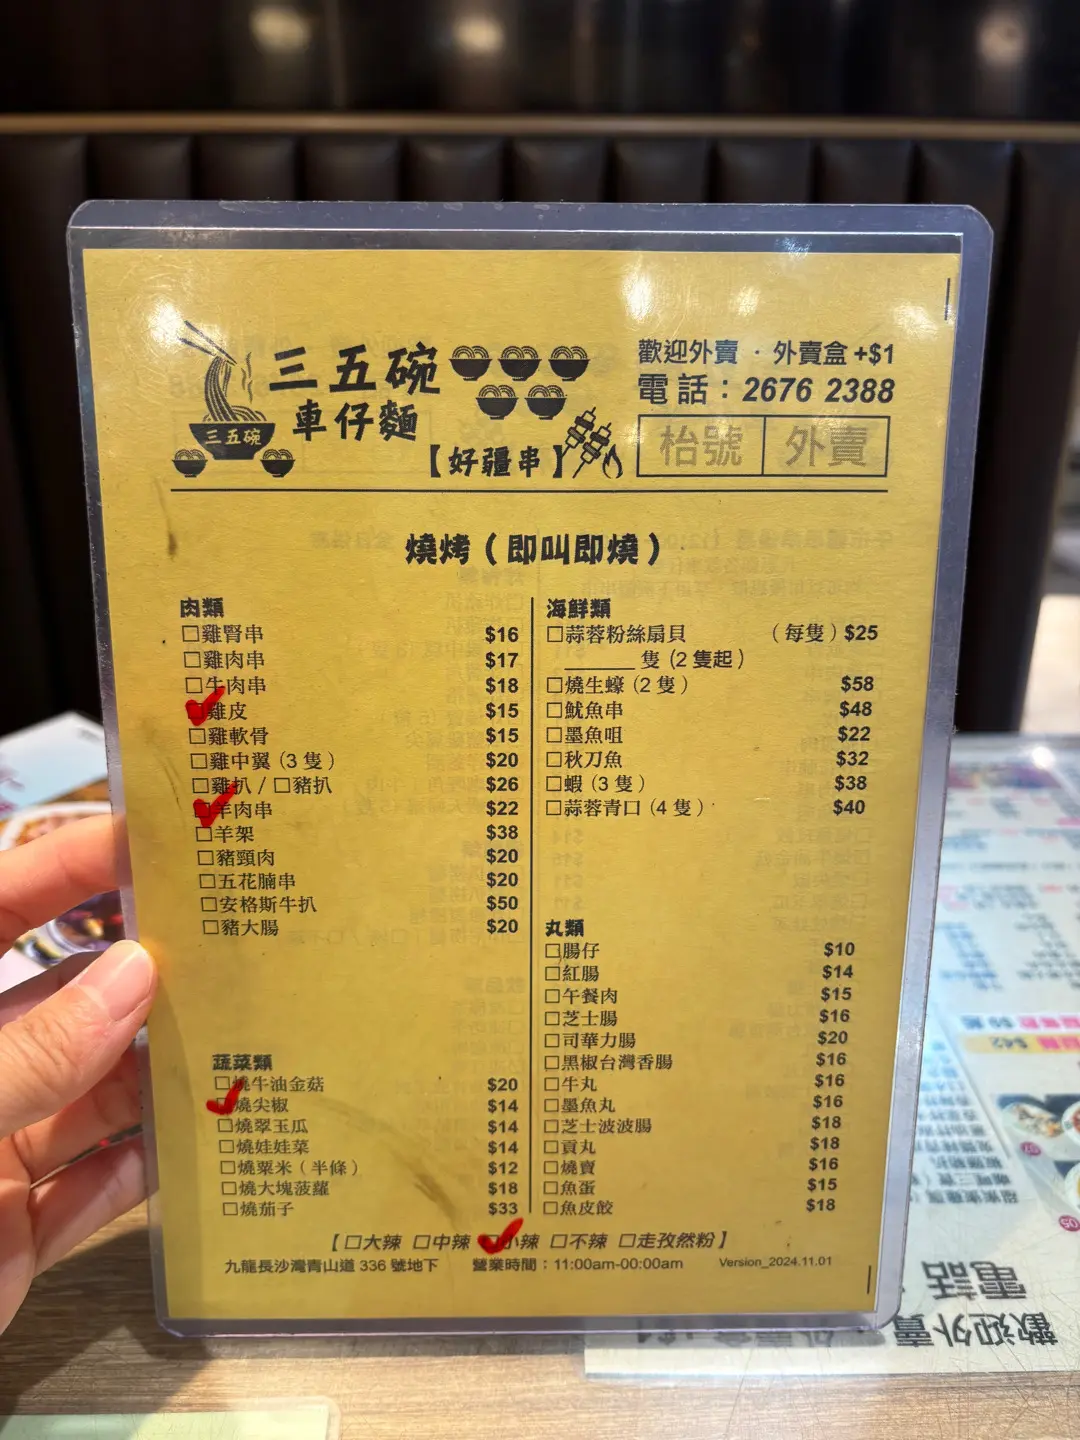 三五碗
車仔麵
三五碗
【好疆串】
歡迎外賣 · 外賣盒+$1
電話：2676 2388
枱號 外賣
燒烤（即叫即燒）
肉類
□雞腎串 $16
□雞肉串 $17
□牛肉串 $18
□雞皮 $15
□雞軟骨 $15
□雞中翼（3 隻） $20
□雞扒 / □豬扒 $26
□羊肉串 $22
□羊架 $38
□豬頸肉 $20
□五花腩串 $20
□安格斯牛扒 $50
□豬大腸 $20
蔬菜類
□燒牛油金菇 $20
□燒尖椒 $14
□燒翠玉瓜 $14
□燒娃娃菜 $14
□燒粟米（半條） $12
□燒大塊菠蘿 $18
□燒茄子 $33
海鮮類
□蒜蓉粉絲扇貝 （每隻）$25
______ 隻（2 隻起）
□燒生蠔（2 隻） $58
□魷魚串 $48
□墨魚咀 $22
□秋刀魚 $32
□蝦（3 隻） $38
□蒜蓉青口（4 隻） $40
丸類
□腸仔 $10
□紅腸 $14
□午餐肉 $15
□芝士腸 $16
□司華力腸 $20
□黑椒台灣香腸 $16
□牛丸 $16
□墨魚丸 $16
□芝士波波腸 $18
□貢丸 $18
□燒賣 $16
□魚蛋 $15
□魚皮餃 $18
【□大辣 □中辣 □小辣 □不辣 □走孜然粉】
九龍長沙灣青山道 336 號地下 營業時間：11:00am-00:00am Version_2024.11.01
電話
歡迎外賣